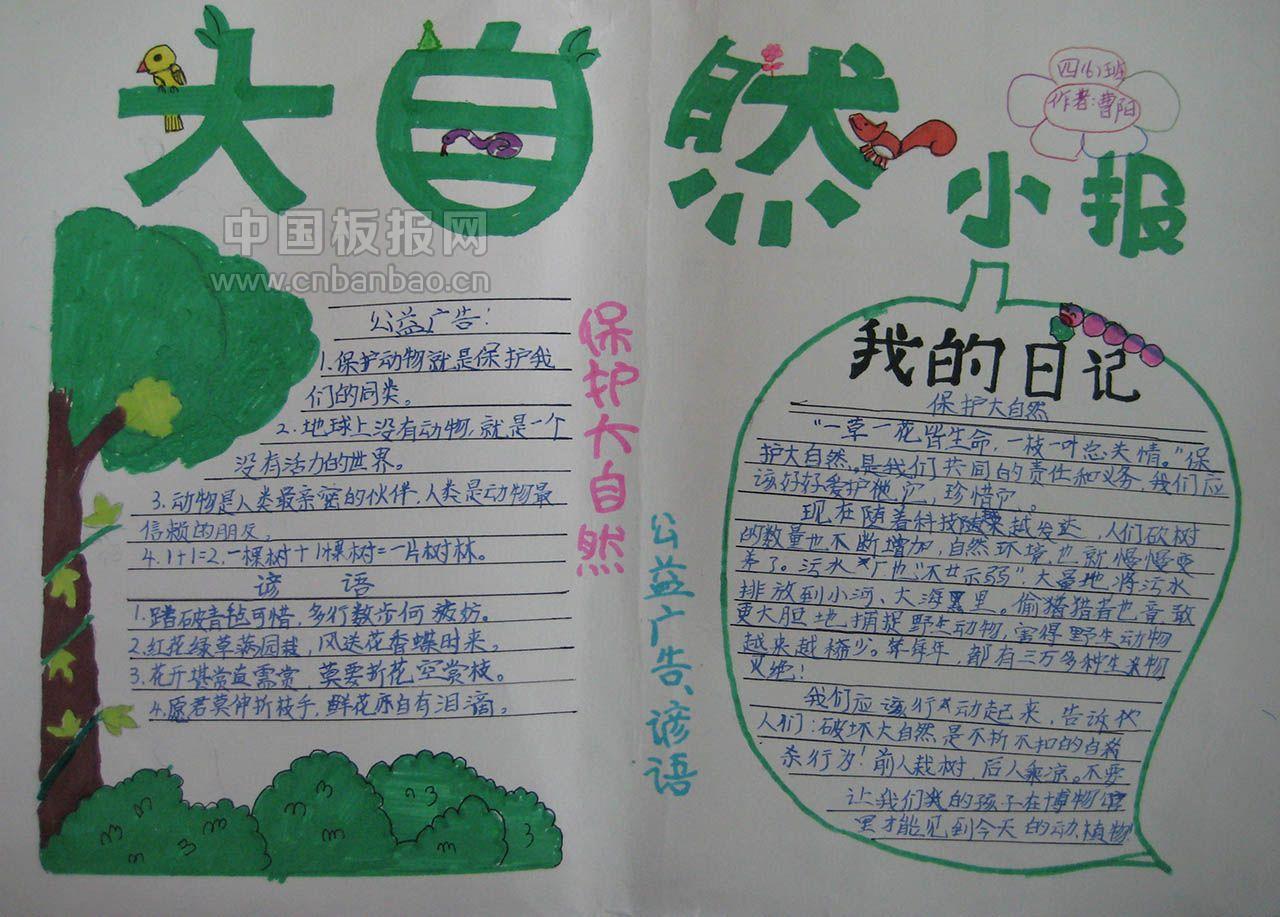 大自然小报
四(6)班
作者:曹阳
中国板报网
www.cnbanbao.cn
公益广告!
1.保护动物就是保护我
们的同类。
2.地球上没有动物,就是一个
没有活力的世界。
3.动物是人类最亲密的伙伴,人类是动物最
信赖的朋友。
4.1+1=2,一棵树+1棵树=一片树林。
谚 语
1.踏破青毡可惜,多行数步何妨。
2.红花绿草满园栽,风送花香蝶时来。
3.花开堪赏直需赏,莫要折花空赏枝。
4.愿君莫伸折枝手,鲜花亦自有泪滴。
保护大自然
公益广告、谚语
我的日记
保护大自然
“一草一花皆生命,一枝一叶总关情。”保
护大自然,是我们共同的责任和义务,我们应
该好好爱护它,珍惜它。
现在随着科技越发达,人们砍树
的数量也不断增加,自然环境也就慢慢变
差了。污水厂也“不甘示弱”,大量地将污水
排放到小河、大海里。偷猎者也竟敢
更大胆地捕捉野生动物,害得野生动物
越来越稀少。年年,都有三万多种生物
灭绝!
我们应该行动起来,告诉
人们:破坏大自然是不折不扣的自
杀行为!前人栽树,后人乘凉。不要
让我们的孩子在博物馆
里才能见到今天的动、植物